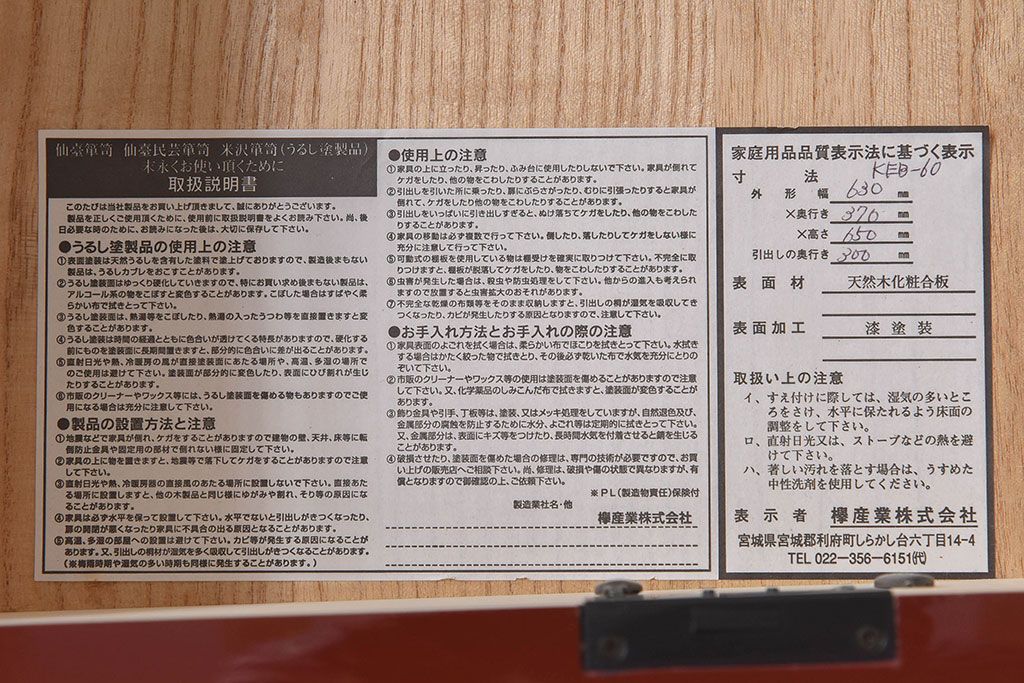 仙臺箪笥　仙臺民芸箪笥　米沢箪笥(うるし塗製品)
末永くお使い頂くために
取扱説明書
このたびは当社製品をお買い上げ頂きまして、誠にありがとうございます。
製品を正しくご使用頂くために、使用前に取扱説明書をよくお読み下さい。尚、後
日必要な時のために、お読みになった後は、大切に保存して下さい。
●うるし塗製品の使用上の注意
①表面塗装は天然うるしを含有した塗料で塗上げておりますので、製造後まもない
製品は、うるしカブレをおこすことがあります。
②うるし塗装面はゆっくり硬化していきますので、特にお買い求め後まもない製品は、
アルコール系の物をこぼすと変色することがあります。こぼした場合はすばやく柔
らかい布で拭きとって下さい。
③うるし塗装面は、熱湯等をこぼしたり、熱湯の入ったうつわ等を直接置きますと変
色することがあります。
④うるし塗装は時間の経過とともに色合いが透けてくる特長がありますので、硬化する
前にものを塗装面に長期間置きますと、部分的に色合いに差が出ることがあります。
⑤直射日光や熱、冷暖房の風が直接塗装面にあたる場所や、高温、多湿の場所で
のご使用は避けて下さい。塗装面が部分的に変色したり、表面にひび割れが生じ
たりすることがあります。
⑥市販のクリーナーやワックス等には、うるし塗装面を傷める物もありますのでご使
用になる場合は充分に注意して下さい。
●製品の設置方法と注意
①地震などで家具が倒れ、ケガをすることがありますので建物の壁、天井、床等に転
倒防止金具や固定用の部材で倒れない様に固定して下さい。
②家具の上に物を置きますと、地震等で落下してケガをすることがありますので注意
して下さい。
③直射日光や熱、冷暖房器の直接風のあたる場所に設置しないで下さい。直接あた
る場所に設置しますと、他の木製品と同じ様にゆがみや割れ、そり等の原因にな
ることがあります。
④家具は必ず水平を保って設置して下さい。水平でないと引出しがきつくなったり、
扉の開閉が悪くなったり家具に不具合の出る原因となることがあります。
⑤高温、多湿の部屋への設置は避けて下さい。カビ等が発生する原因になることが
あります。又、引出しの桐材が湿気を多く吸収して引出しがきつくなることがあります。
(※梅雨時期や湿気の多い時期も同様に発生することがあります。)
●使用上の注意
①家具の上に立ったり、昇ったり、ふみ台に使用したりしないで下さい。家具が倒れて
ケガをしたり、他の物をこわしたりすることがあります。
②引出しを引いた所に乗ったり、扉にぶらさがったり、むりに引張ったりすると家具が
倒れて、ケガをしたり他の物をこわしたりすることがあります。
③引出しをいっぱいに引き出しすぎると、ぬけ落ちてケガをしたり、他の物をこわした
りすることがあります。
④家具の移動は必ず複数で行って下さい。倒したり、落したりしてケガをしない様に
充分に注意して行って下さい。
⑤可動式の棚板を使用している物は棚受けを確実に取りつけて下さい。不完全に取
りつけますと、棚板が脱落してケガをしたり、物をこわしたりすることがあります。
⑥虫害が発生した場合は、殺虫や防虫処理をして下さい。他からの進入も考えられ
ますので放置すると虫害拡大のおそれがあります。
⑦不完全な乾燥の布類等をそのまま収納しますと、引出しの桐が湿気を吸収してき
つくなったり、カビが発生したりする原因となりますので、注意して下さい。
●お手入れ方法とお手入れの際の注意
①家具表面のよごれを拭く場合は、柔らかい布でほこりを拭きとって下さい。水拭き
する場合はかたく絞った物で拭きとり、その後必ず乾いた布で水気を充分にとりの
ぞいて下さい。
②市販のクリーナーやワックス等の使用は塗装面を傷めることがありますので注意
して下さい。又、化学薬品のしみこんだ布で拭きますと、塗装面が変色することが
あります。
③飾り金具や引手、丁板等は、塗装、又はメッキ処理をしていますが、自然退色及び、
金属部分の腐食を防止するために水分、よごれ等は定期的に拭きとって下さい。
又、金属部分は、表面にキズ等をつけたり、長時間水気を付着させると錆を生じる
ことがあります。
④破損させたり、塗装面を傷めた場合の修理は、専門の技術が必要ですので、お買
い上げの販売店へご相談下さい。尚、修理は、破損や傷の状態で異なりますが、有
償となりますので御確認の上、ご依頼下さい。
※PL(製造物責任)保険付
製造業社名・他
欅産業株式会社
家庭用品品質表示法に基づく表示
KEB-60
寸　法
外形幅 630 ㎜
×奥行き 370 ㎜
×高さ 650 ㎜
引出しの奥行き 300 ㎜
表面材 天然木化粧合板
表面加工 漆塗装
取扱い上の注意
イ、すえ付けに際しては、湿気の多いとこ
ろをさけ、水平に保たれるよう床面の
調整をして下さい。
ロ、直射日光又は、ストーブなどの熱を避
けて下さい。
ハ、著しい汚れを落とす場合は、うすめた
中性洗剤を使用してください。
表示者 欅産業株式会社
宮城県宮城郡利府町しらかし台六丁目14-4
TEL 022-356-6151㈹